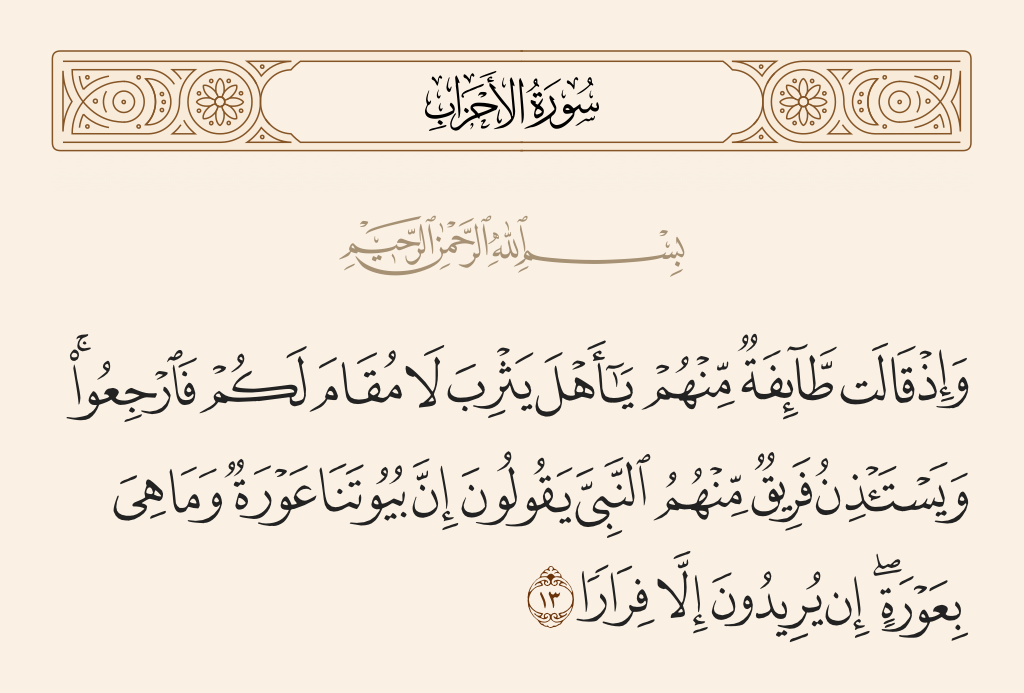 سُورَةُ الأَحْزَابِ
بِسْمِ ٱللَّهِ ٱلرَّحْمَٰنِ ٱلرَّحِيمِ
وَإِذْ قَالَت طَّآئِفَةٌ مِّنْهُمْ يَٰٓأَهْلَ يَثْرِبَ لَا مُقَامَ لَكُمْ فَٱرْجِعُوا۟ ۚ
وَيَسْتَـْٔذِنُ فَرِيقٌ مِّنْهُمُ ٱلنَّبِىَّ يَقُولُونَ إِنَّ بُيُوتَنَا عَوْرَةٌ وَمَا هِىَ
بِعَوْرَةٍ ۖ إِن يُرِيدُونَ إِلَّا فِرَارًا ١٣